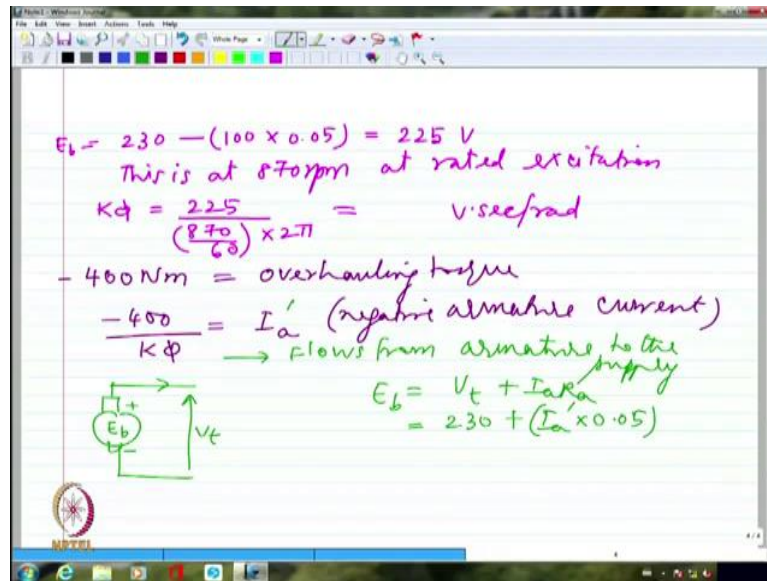 Note1 - Windows Journal
File Edit View Insert Actions Tools Help
Whole Page
E_b = 230 — (100 x 0.05) = 225 V
This is at 870rpm at rated excitation
Kϕ = 225 / ((870/60) x 2π) = v.sec/rad
- 400 Nm = overhauling torque
-400 / Kϕ = I_a' (negative armature current)
→ Flows from armature to the supply
E_b = V_t + I_a R_a
= 230 + (I_a' x 0.05)
E_b + - V_t
NPTEL
4/4